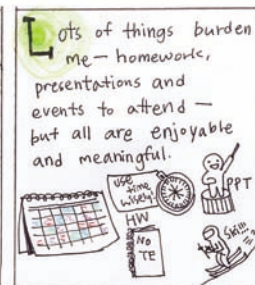 Lots of things burden
me — homework,
presentations and
events to attend —
but all are enjoyable
and meaningful.
use
time
wisely!
PPT
HW
NO
TE
Ski!!!